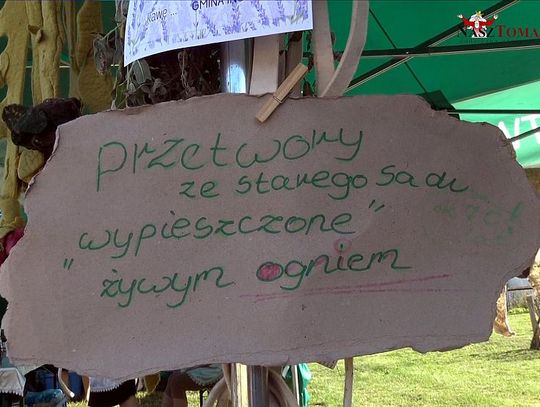 Nawie...
GMINA
NASZTOMA
Przetwory
ze starego sadu
"wypieszczone"
żywym ogniem